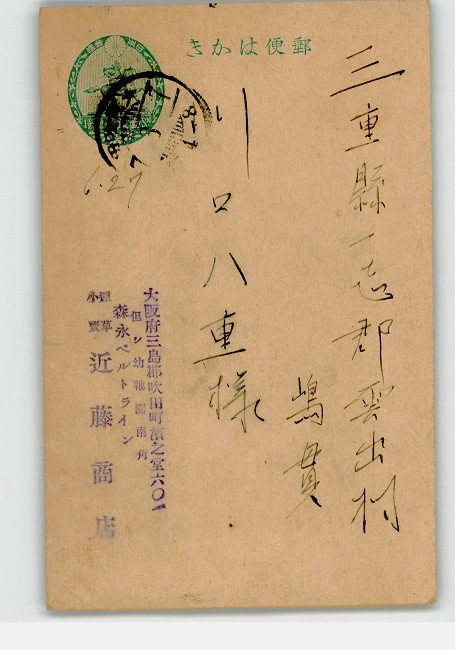 郵便はかき
三重縣一志郡雲出村
嶋貫
川口八重様
6.27
大阪府三島郡吹田町濱之堂六〇一
但シ幼稚園南角
森永ベルトライン
近藤商店